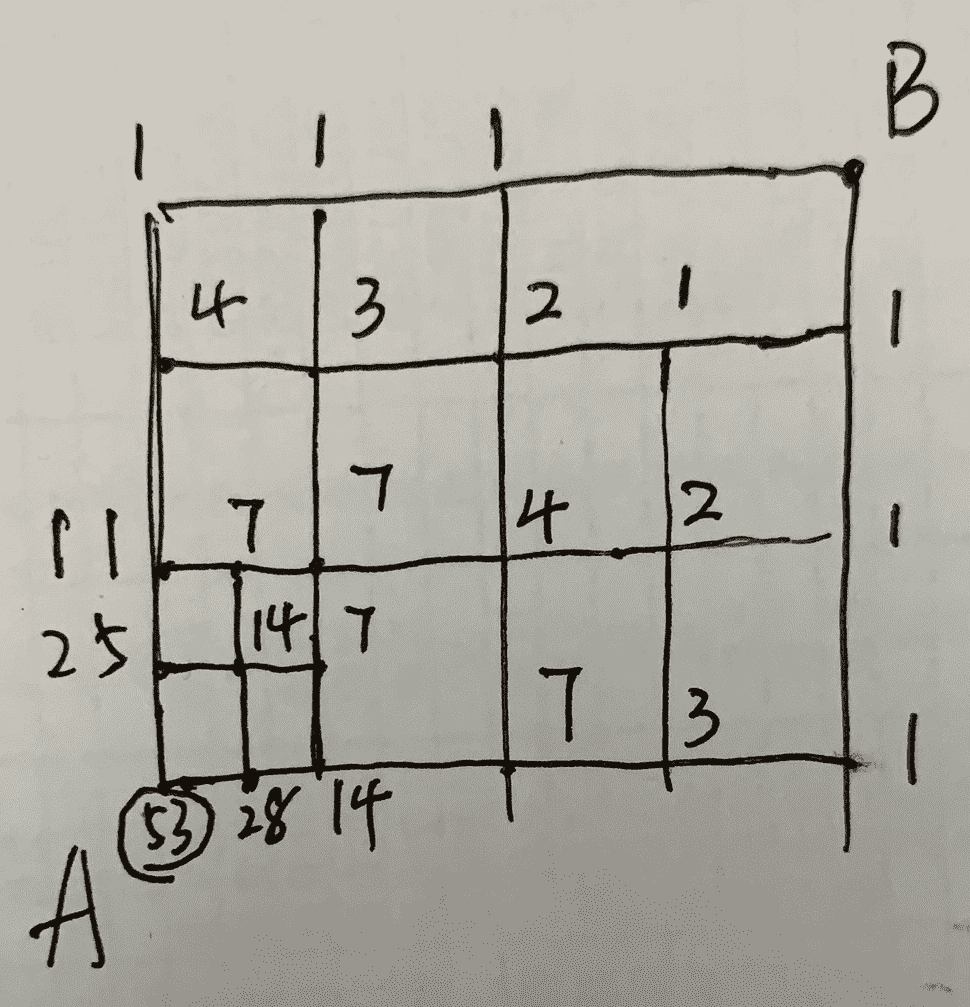 B
1 1 1
4 3 2 1 1
7 7 4 2 1
11
25 14 7
7 3 1
53 28 14
A